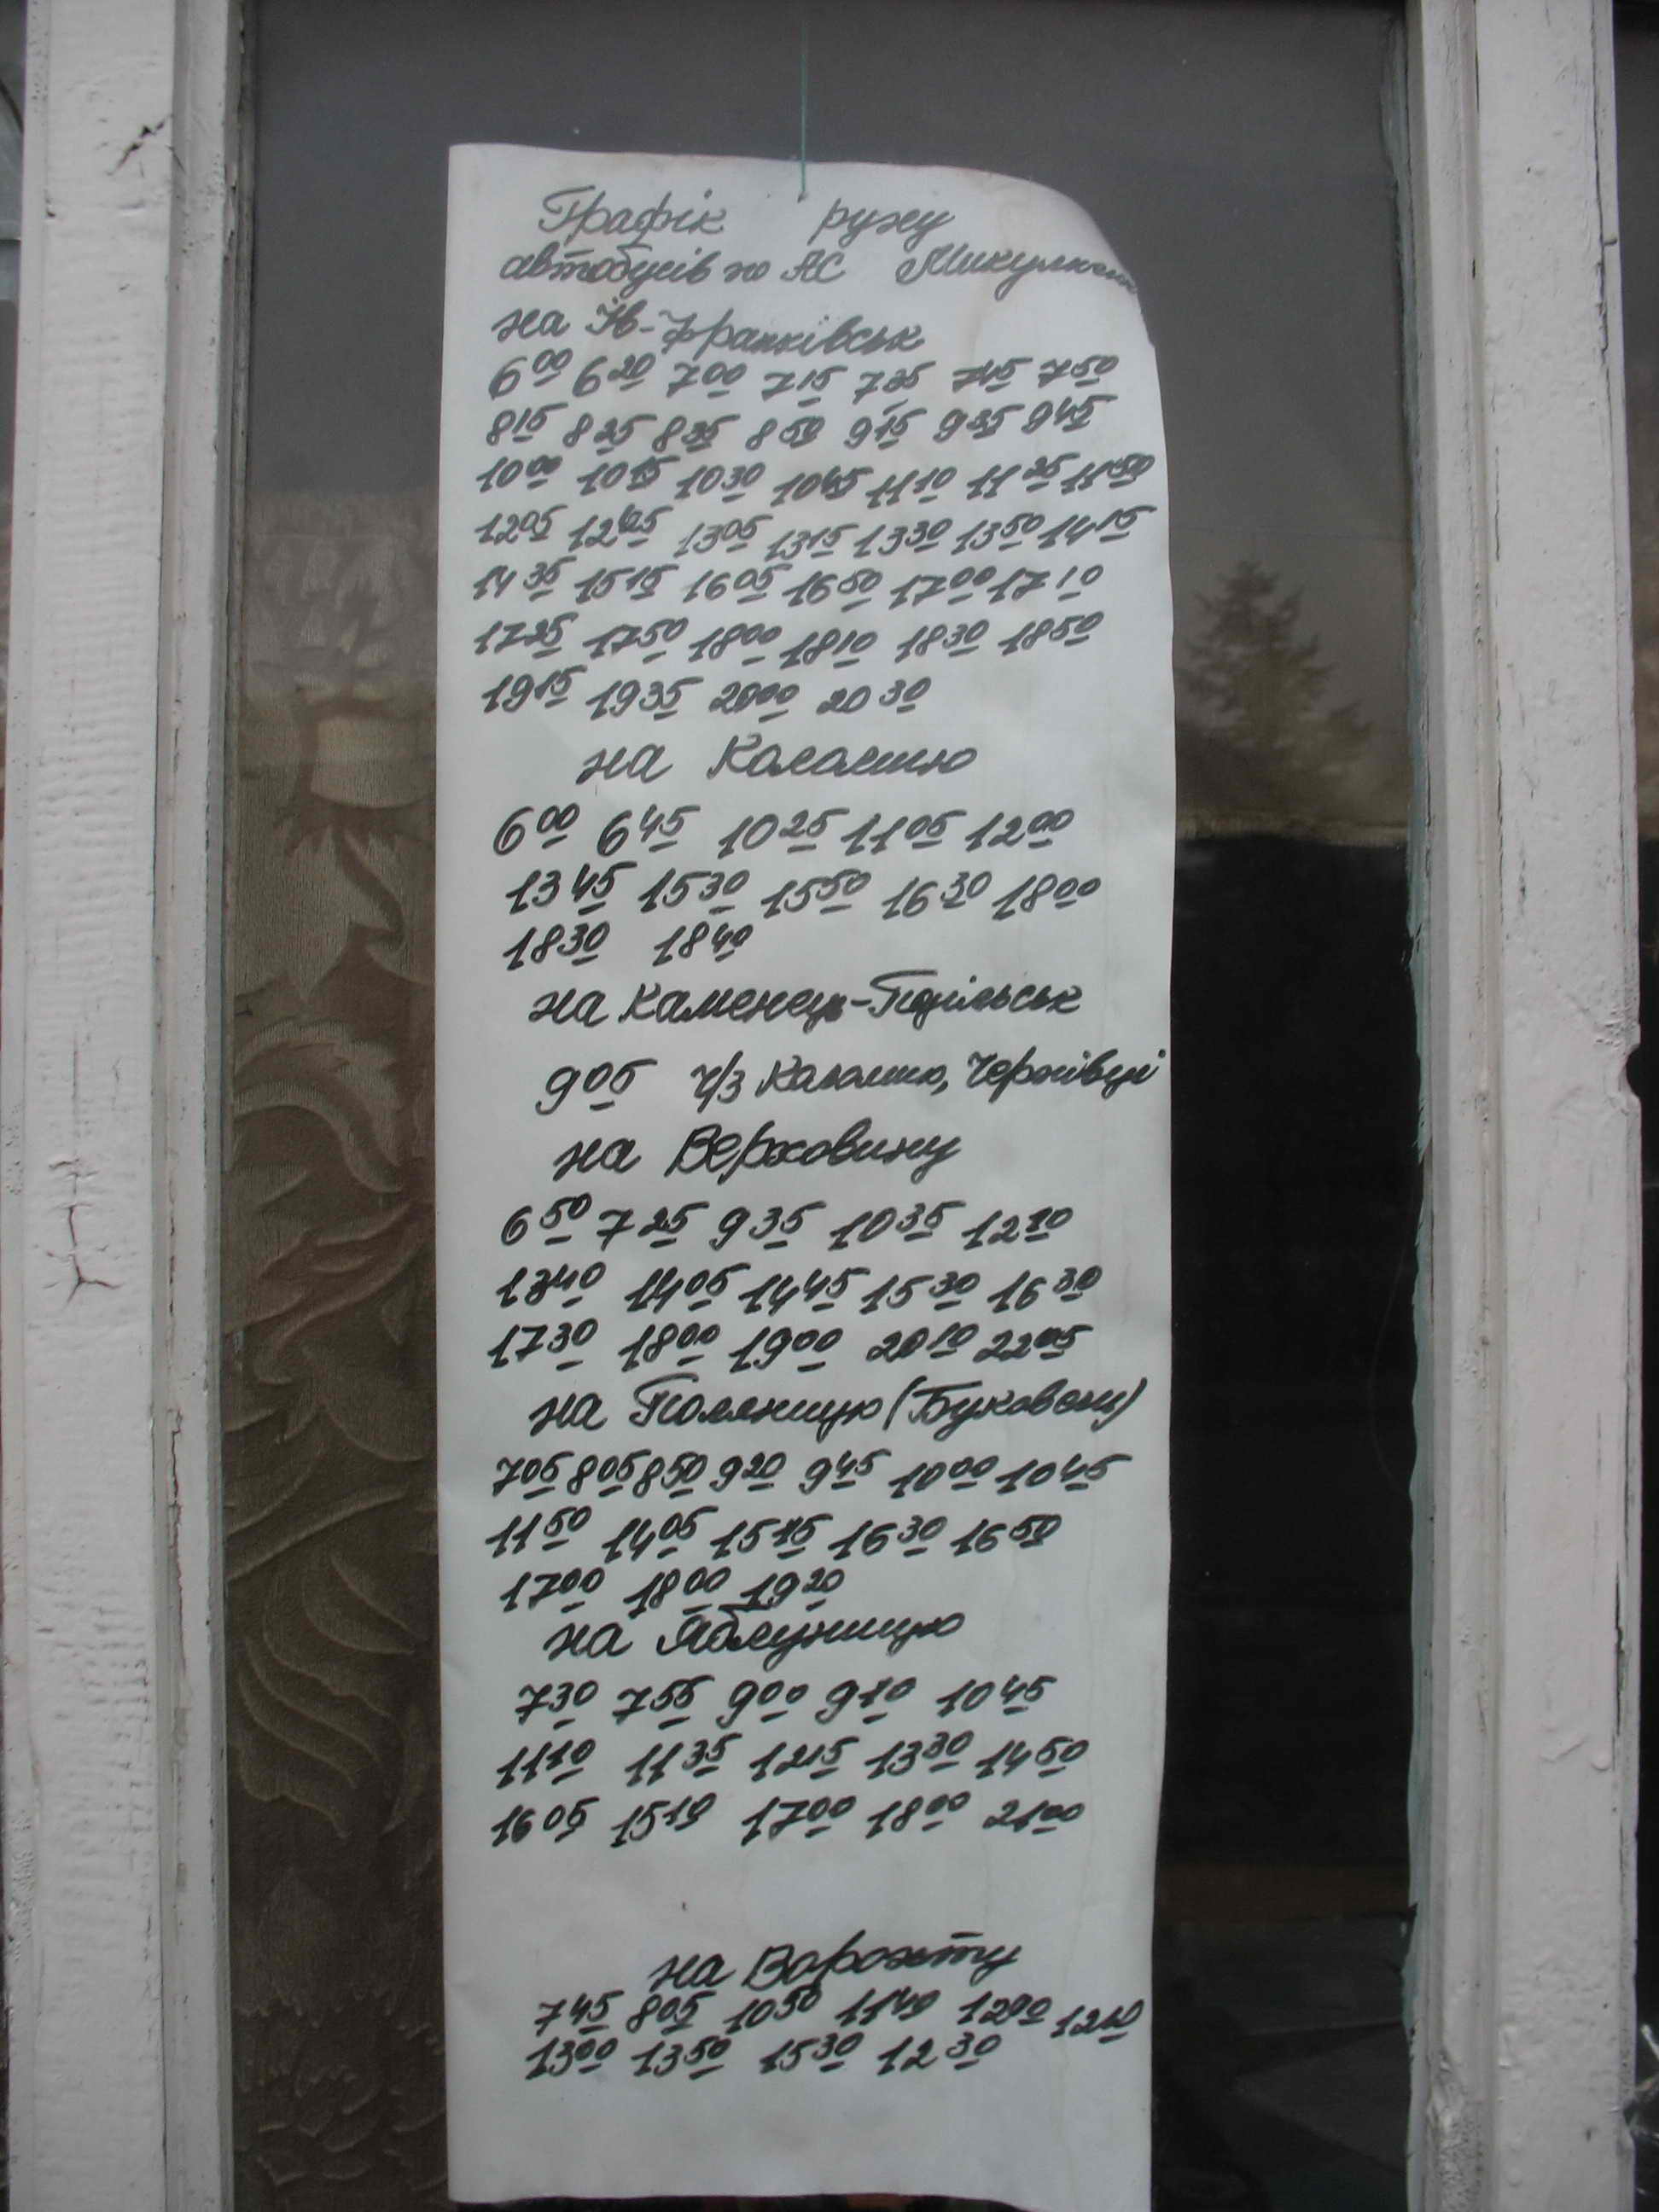 Графік руху
автобусів по АС Микуличин
на Ів-Франківськ
600 620 700 715 735 745 750
815 825 835 850 915 935 945
1000 1015 1030 1045 1110 1125 1150
1205 1305 1315 1330 1350 1415
1435 1515 1605 1650 1700 1710
1725 1750 1800 1810 1830 1850
1915 1935 2000 2030
на Коломию
600 645 1025 1105 1200
1345 1530 1550 1630 1800
1830 1840
на Каменець-Подільськ
905 ч/з Коломию, Чернівці
на Верховину
650 725 935 1035
1340 1405 1445 1530 1630
1730 1800 1900 2010 2205
на Поляницю (Буковель)
705 805 850 920 945 1000 1045
1150 1405 1515 1630 1650
1700 1800 1920
на Яблуницю
730 755 900 910 1045
1110 1135 1215 1330 1450
1605 1510 1700 1800 2100
на Ворохту
745 805 1050 1140 1200 1210
1300 1350 1530 1230